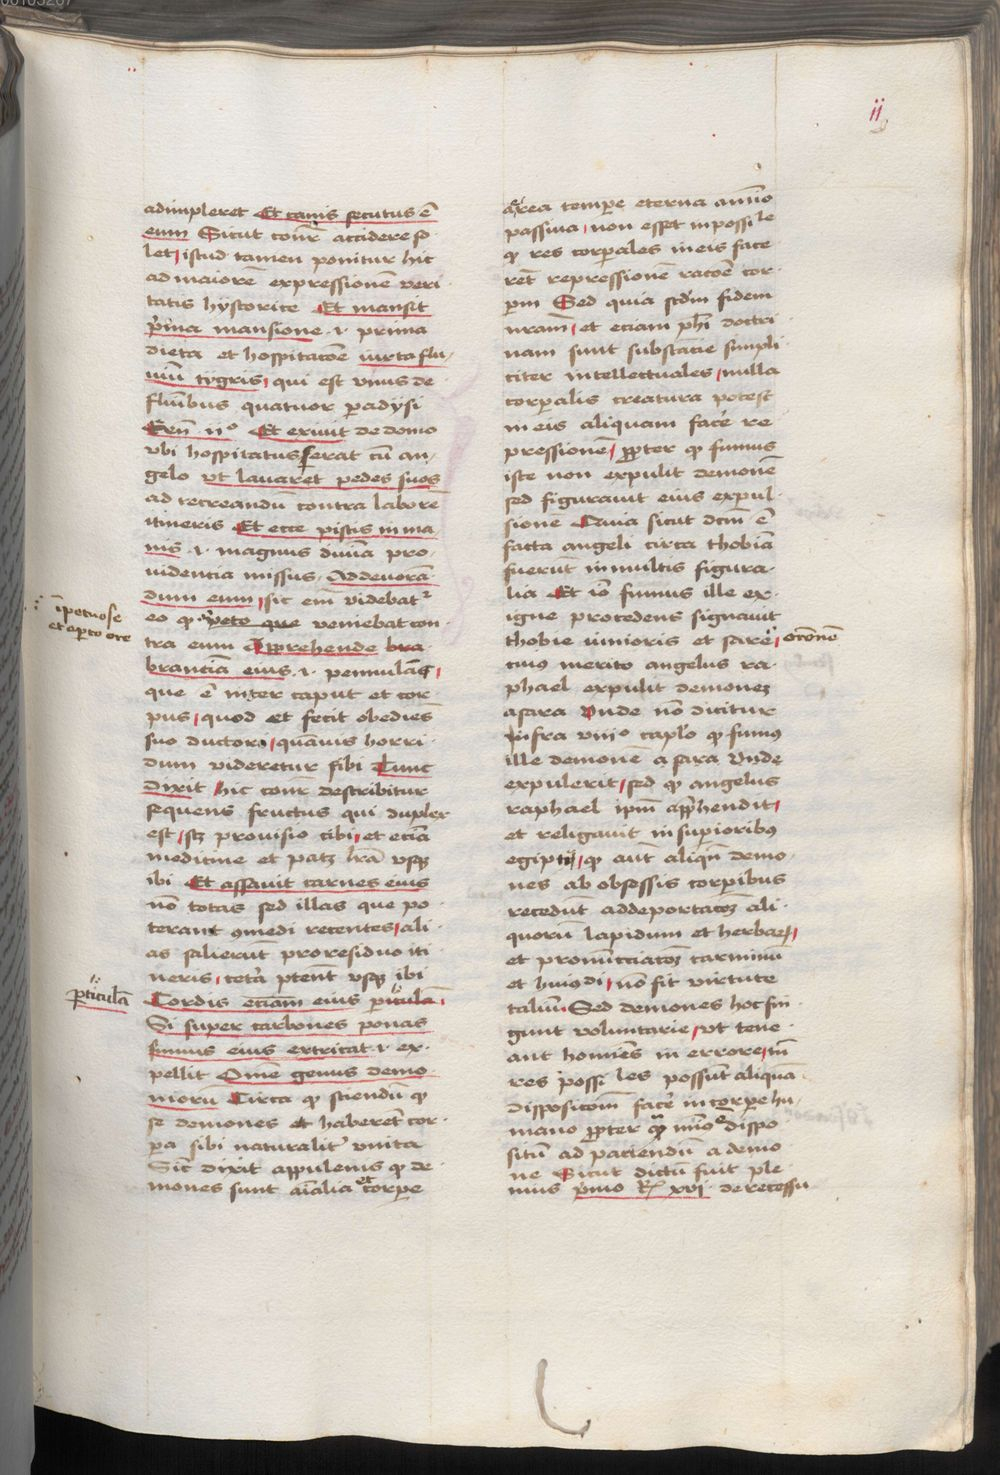 ii
adimpleret Et canis secutus ē
eum Sicut cōiṙ accidere so
let istud tamen ponitur hic
ad maiorē expressionē veri
tatis hystorice Et mansit
p̄ma mansione .i. prima
dieta et hospitacōe iuxta flu
uiū tygris qui est vnus de
fluībus quatuor paradysi
Gen̄ iiº Et exiuit de domo
vbi hospitatus erat cū an
gelo vt lauaret pedes suos
ad recreandū contra laborē
itineris Et ecce piscis imma
nis .i. magnus diuīa pro
uidentia missus Ad deuorā
dum eum sic em̄ videbatr
īpetuose
et apto ore
eo qp veniebat con
tra eum Apprehende bra
branciā eius .i. pennulas
que ē inter caput et cor
pus quod et fecit obediēs
suo ductori quāuis horri
dum videretur sibi Tunc
Dixit hic cōiṙ describitur
sequens fructus qui duplex
est sꝫ prouisio cibi et eciā
medicine et patꝫ lr̄a vsqꝫ
ibi Et assauit carnes eius
nō totas sed illas que po
terant ꝯmedi recentes ali
as salierūt pro residuo iti
neris cetā ptent vsqꝫ ibi
pticulā
Cordis eciam eius pticulā
Si super carbones ponas
fumus eius extricat .i. ex
pellit Ome genus demo
niorū Circa qp sciendū qp
se demones et haberēt cor
pa sibi naturalitˀ vnita
Sic̄ dixit appuleius qp de
mones sunt aīalia et corpe
aerea tempe eterna animo
passiua non esset inpossile
qp res corpales in eis face
rēt repressionē racōe cor
pm Sed quia scd̄m fidem
nr̄am et eciam ph̄i doctri
nam sunt substācie simpli
citer intellectuales nulla
corpalis creatura potest
in eis aliquam facē re
pressionē ppter qp fumus
iste non expulit demonē
sed figurauit eius expul
sionē Quia sicut dcm̄ ē
facta angeli circa thobiā
fuerūt in multis figura
lia Et iō fumus ille ex
igne procedens signauit
thobie iunioris et sare orōnē
cuiꝰ merito angelus ra
phael expulit demonē
a sara Vnde nō dicitur
infra viiiº caplo qp fumꝰ
ille demonē a sara Vnde
expulerit sed qp angelus
raphael ipm apphendit
et religauit in supioribꝰ
egipti qp aut̄ aliqn̄ demo
nes ab obsessis corpibus
recedūt ad deportacōꝫ ali
quorū lapidum et herbaꝝ
et pronūcciacōꝫ carminū
et huiꝰdi nō fit virtute
talium Sed demones hoc fin
gunt voluntarie vt tene
ant homīes in errore tn̄
res possiles possūt aliqua
disposicōm facē in corpe hu
mano ppter qā miō dispo
situ ad paciendū a demo
ne Sicut dictū fuit ple
nius pmo Rꝫ xvi de recessu